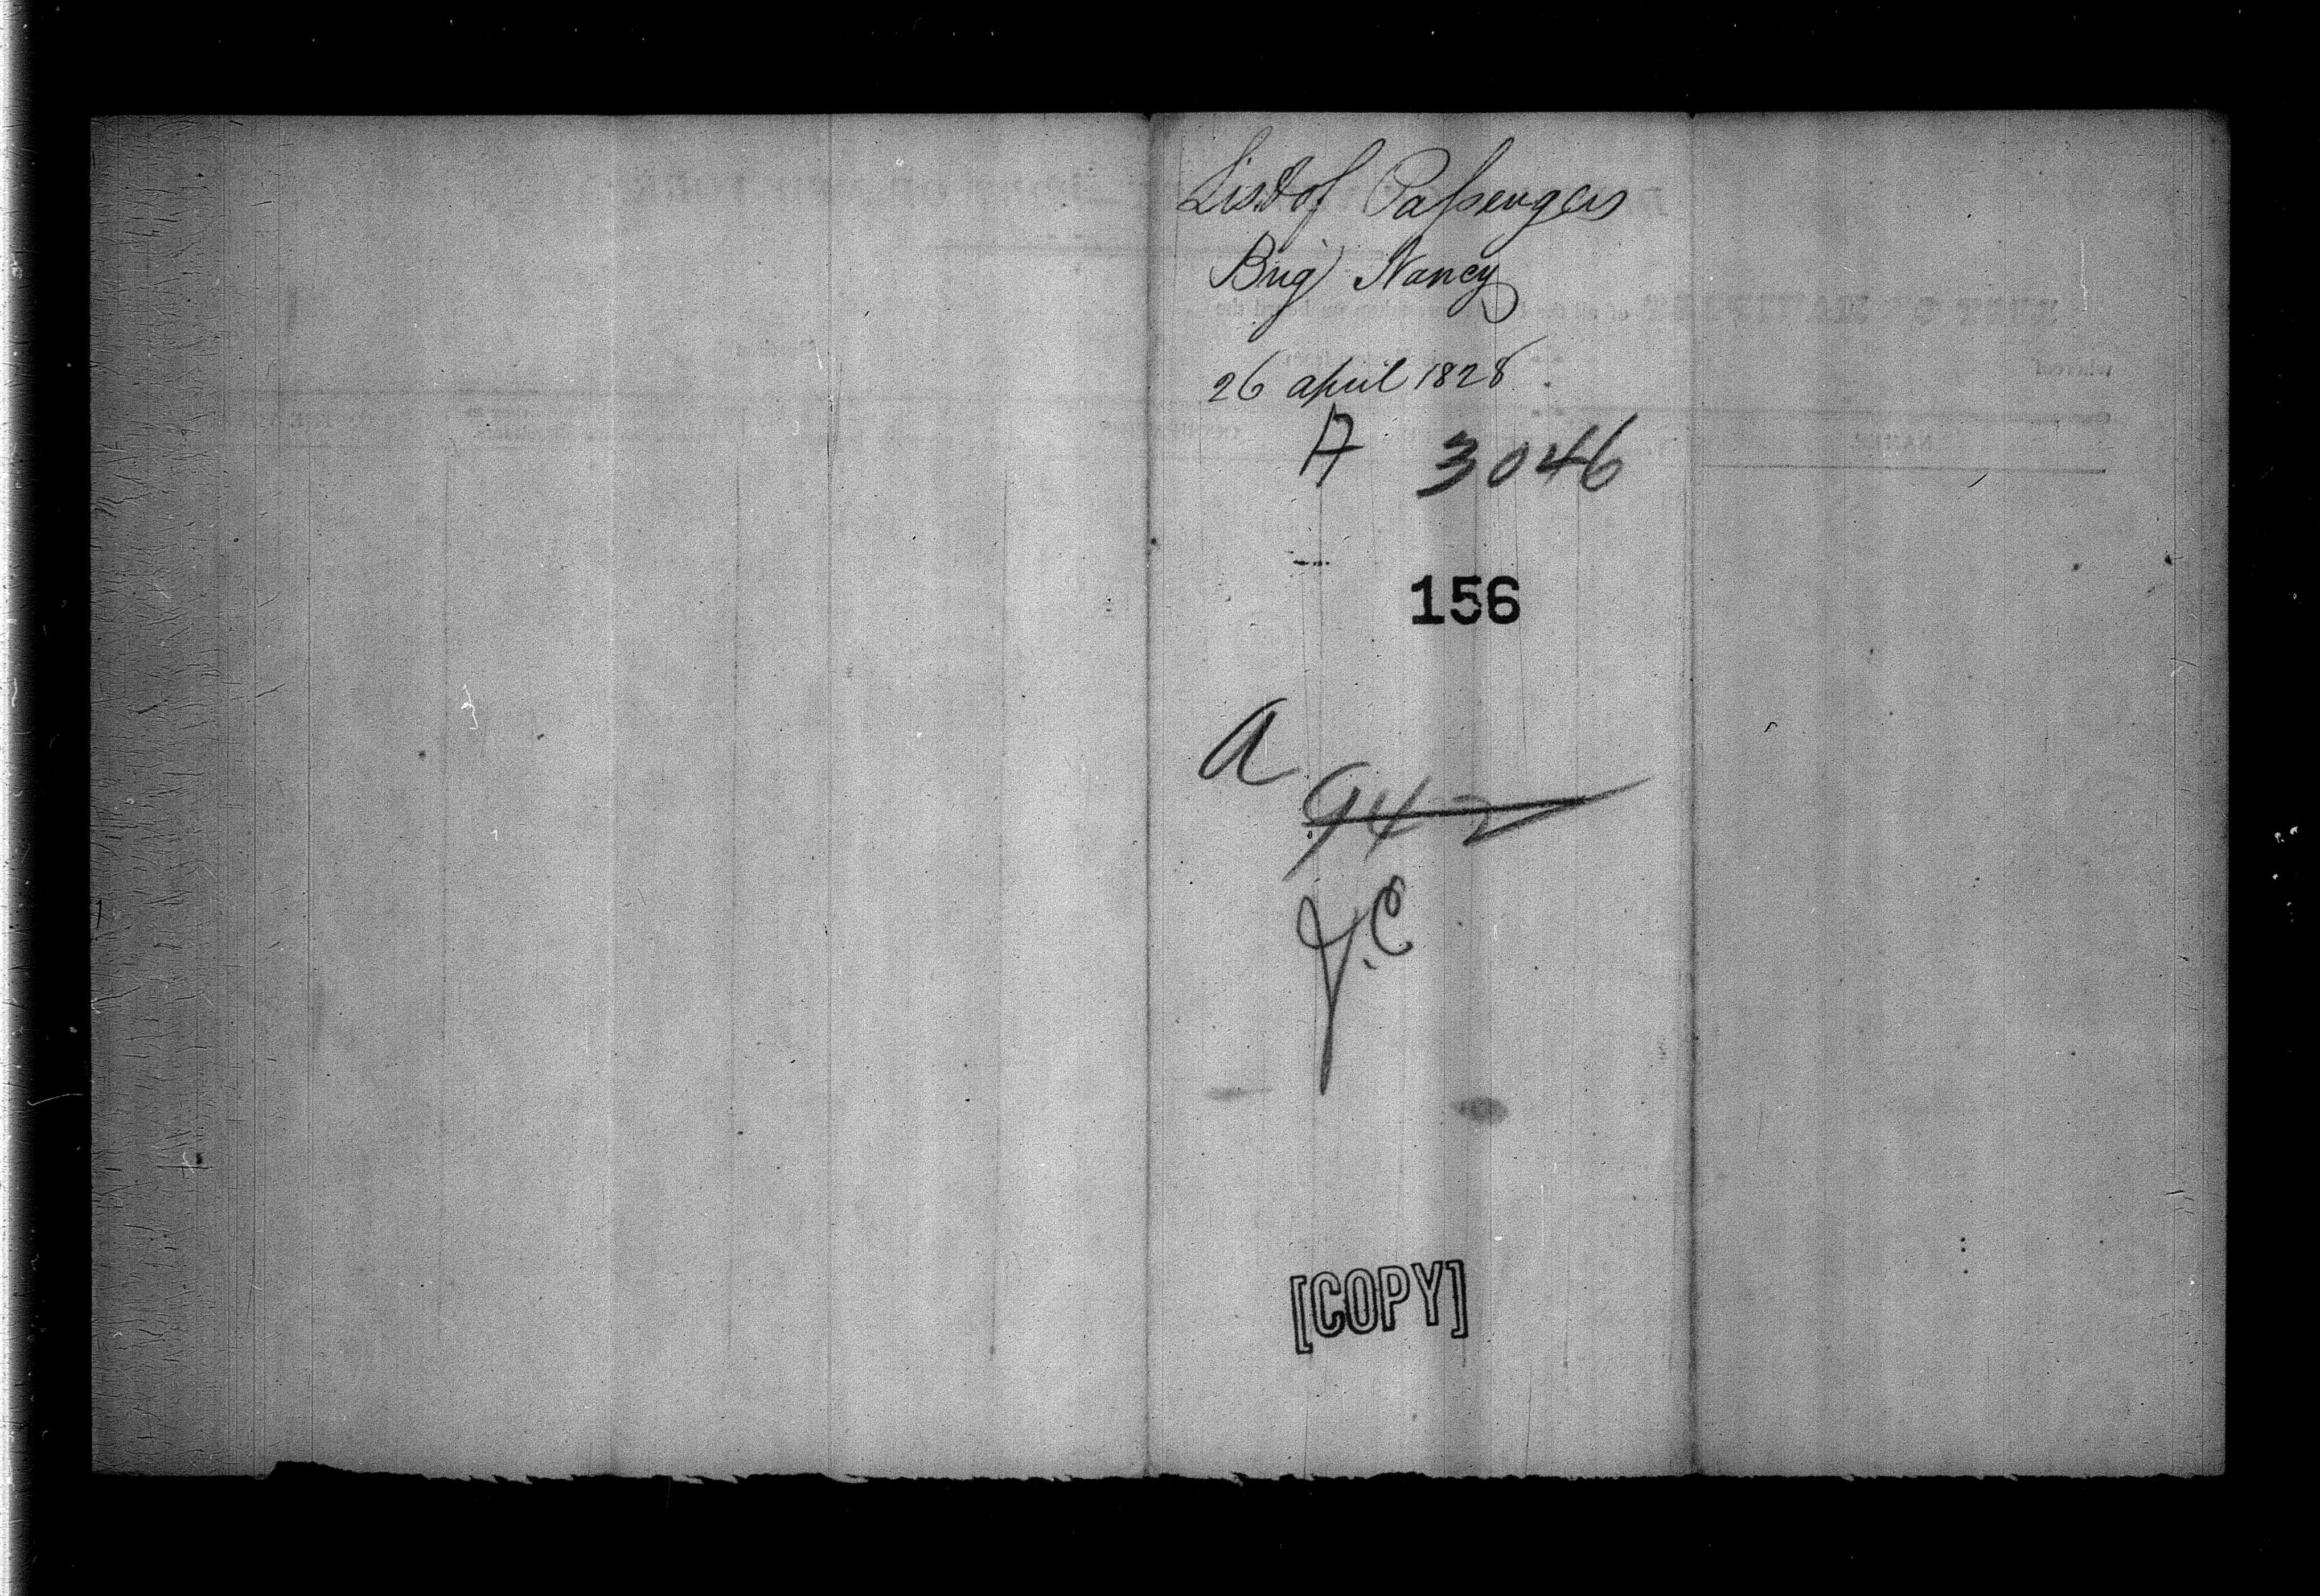 List of Passengers
Brig Nancy
26 april 1828
A 3046
156
A
942
J.C
[COPY]